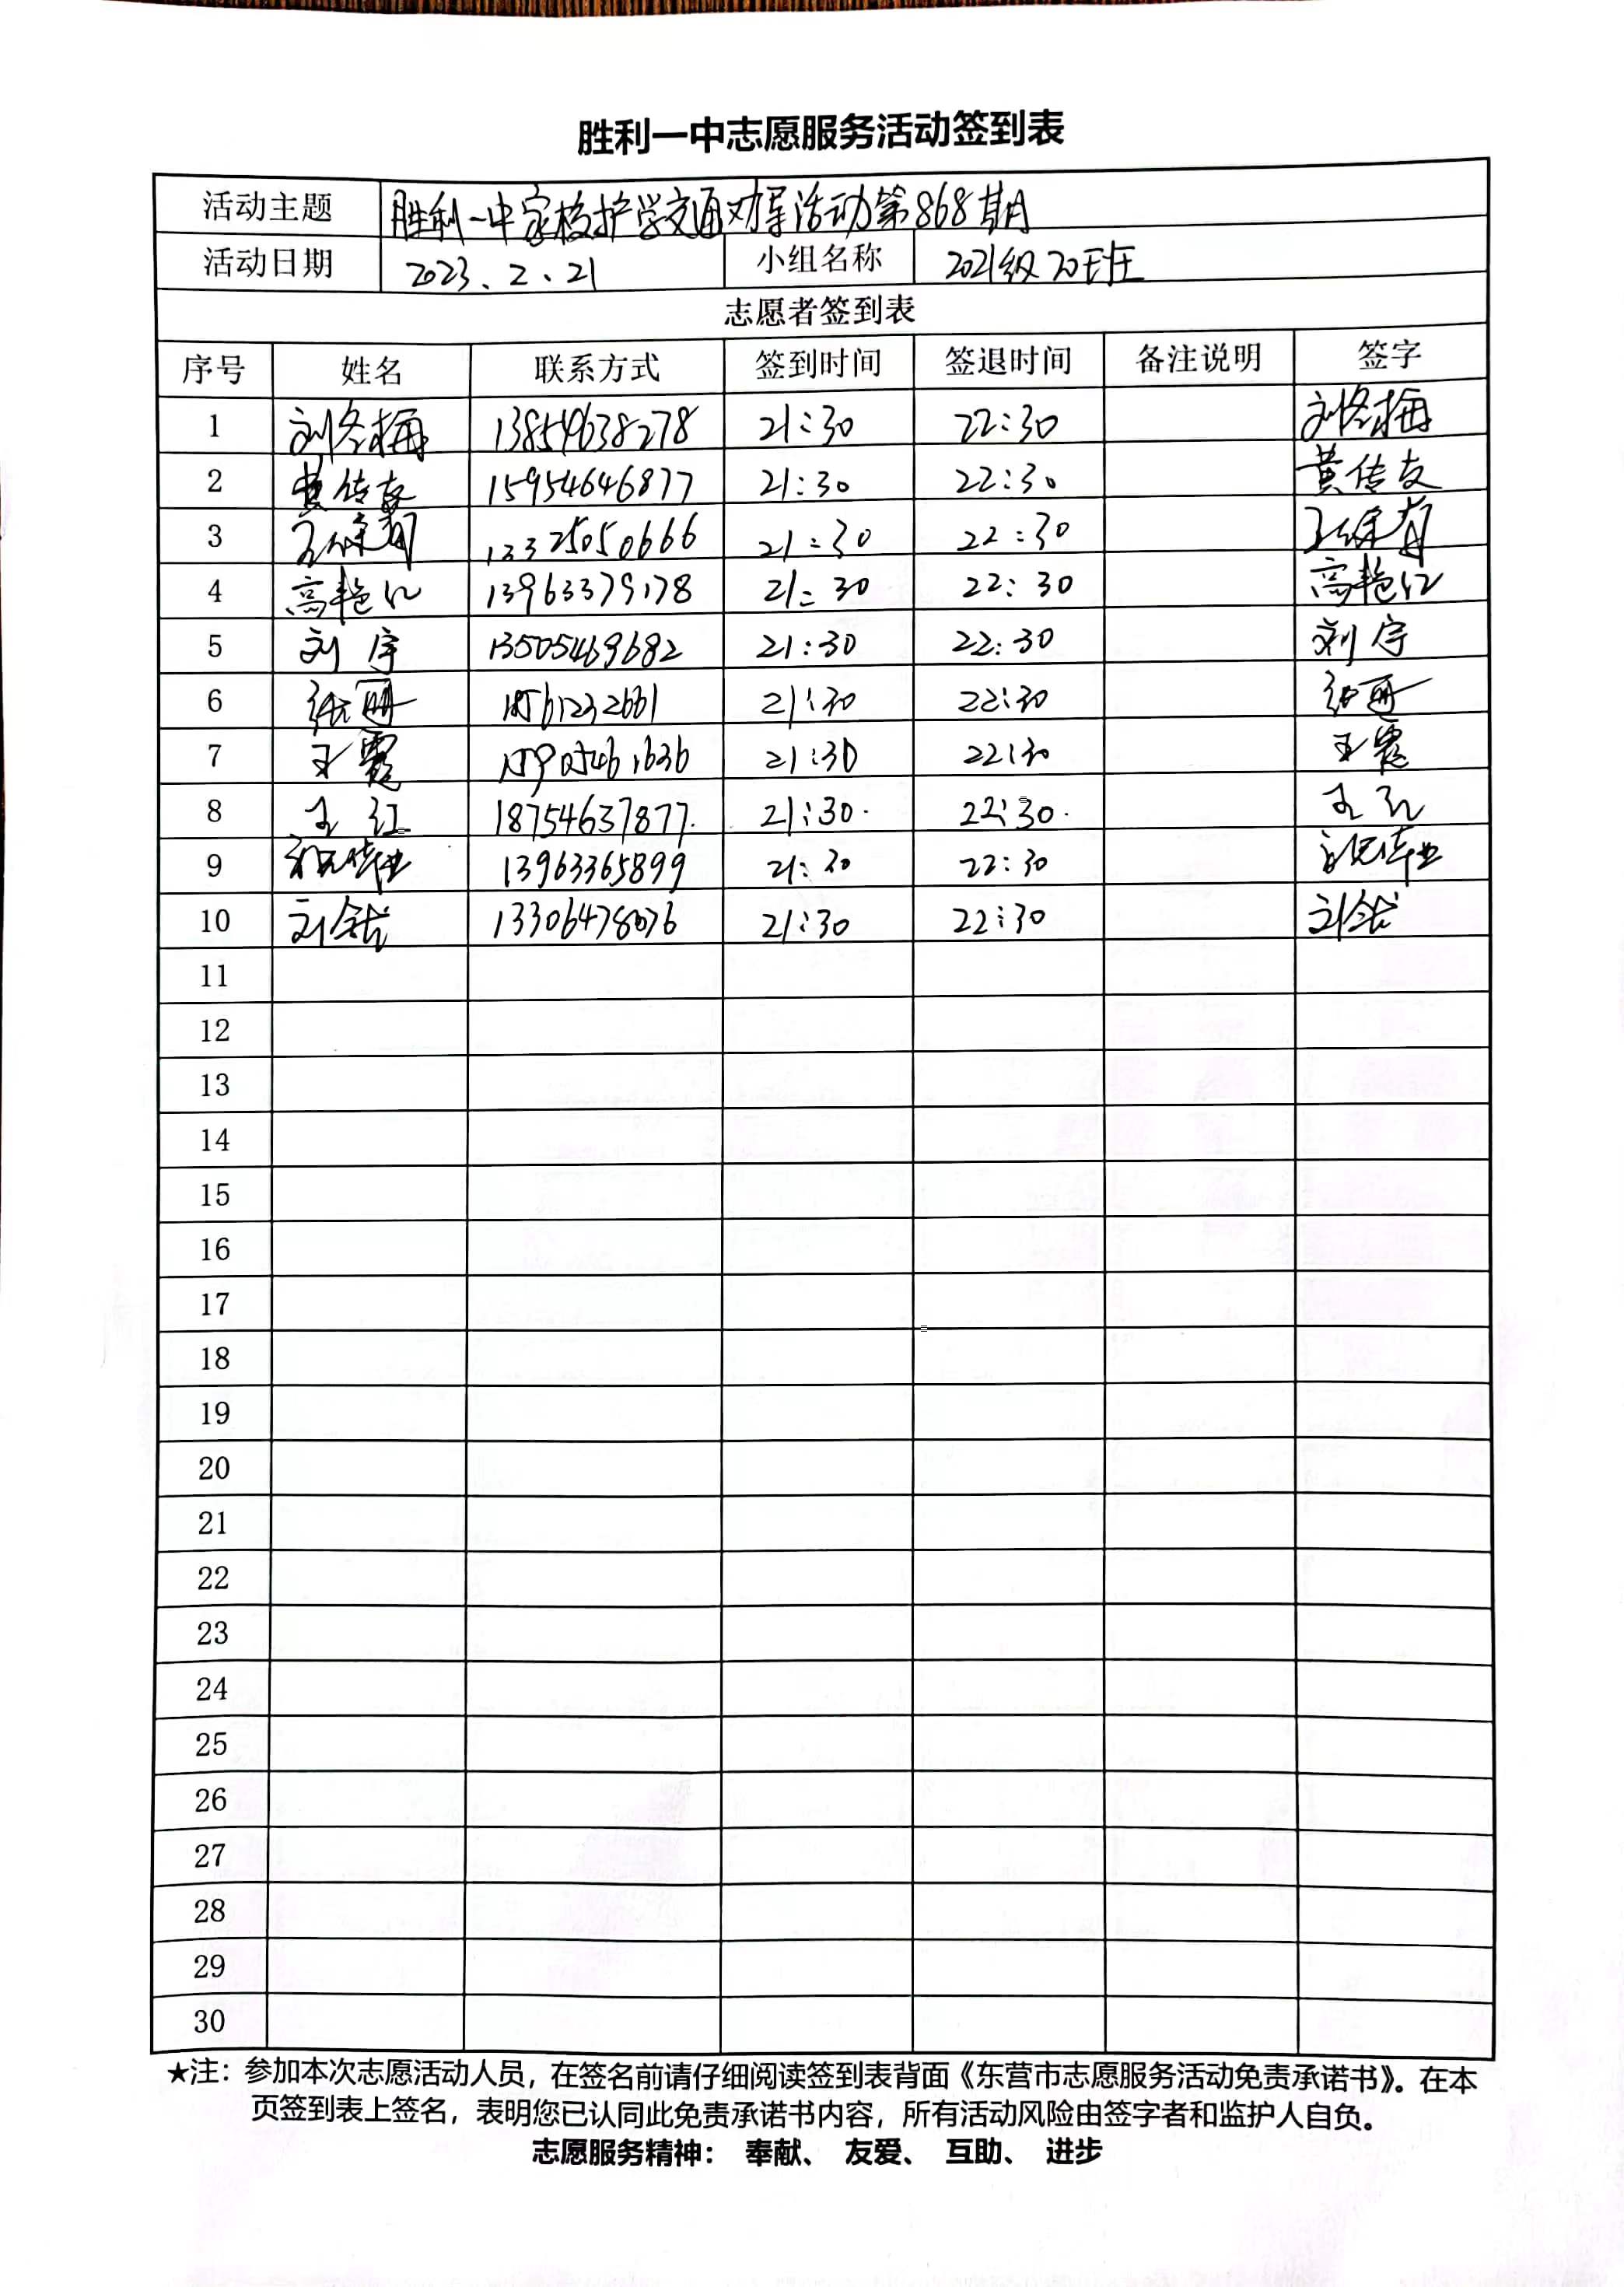 胜利一中志愿服务活动签到表
活动主题 胜利一中家校护学交通劝导活动第868期
活动日期 2023、2、21 小组名称 2021级20班
志愿者签到表
序号 姓名 联系方式 签到时间 签退时间 备注说明 签字
1 刘冬梅 13854638278 21:30 22:30 刘冬梅
2 黄传友 15954646877 21:30 22:30 黄传友
3 13325050666 21:30 22:30
4 高艳红 13963379178 21:30 22:30 高艳红
5 刘宇 13505469682 21:30 22:30 刘宇
6 21:30 22:30
7 王霞 21:30 22:30 王霞
8 王红 18754637877. 21:30. 22:30. 王红
9 13963365899 21:30 22:30
10 13306478076 21:30 22:30
11
12
13
14
15
16
17
18
19
20
21
22
23
24
25
26
27
28
29
30
★注：参加本次志愿活动人员，在签名前请仔细阅读签到表背面《东营市志愿服务活动免责承诺书》。在本
页签到表上签名，表明您已认同此免责承诺书内容，所有活动风险由签字者和监护人自负。
志愿服务精神： 奉献、 友爱、 互助、 进步